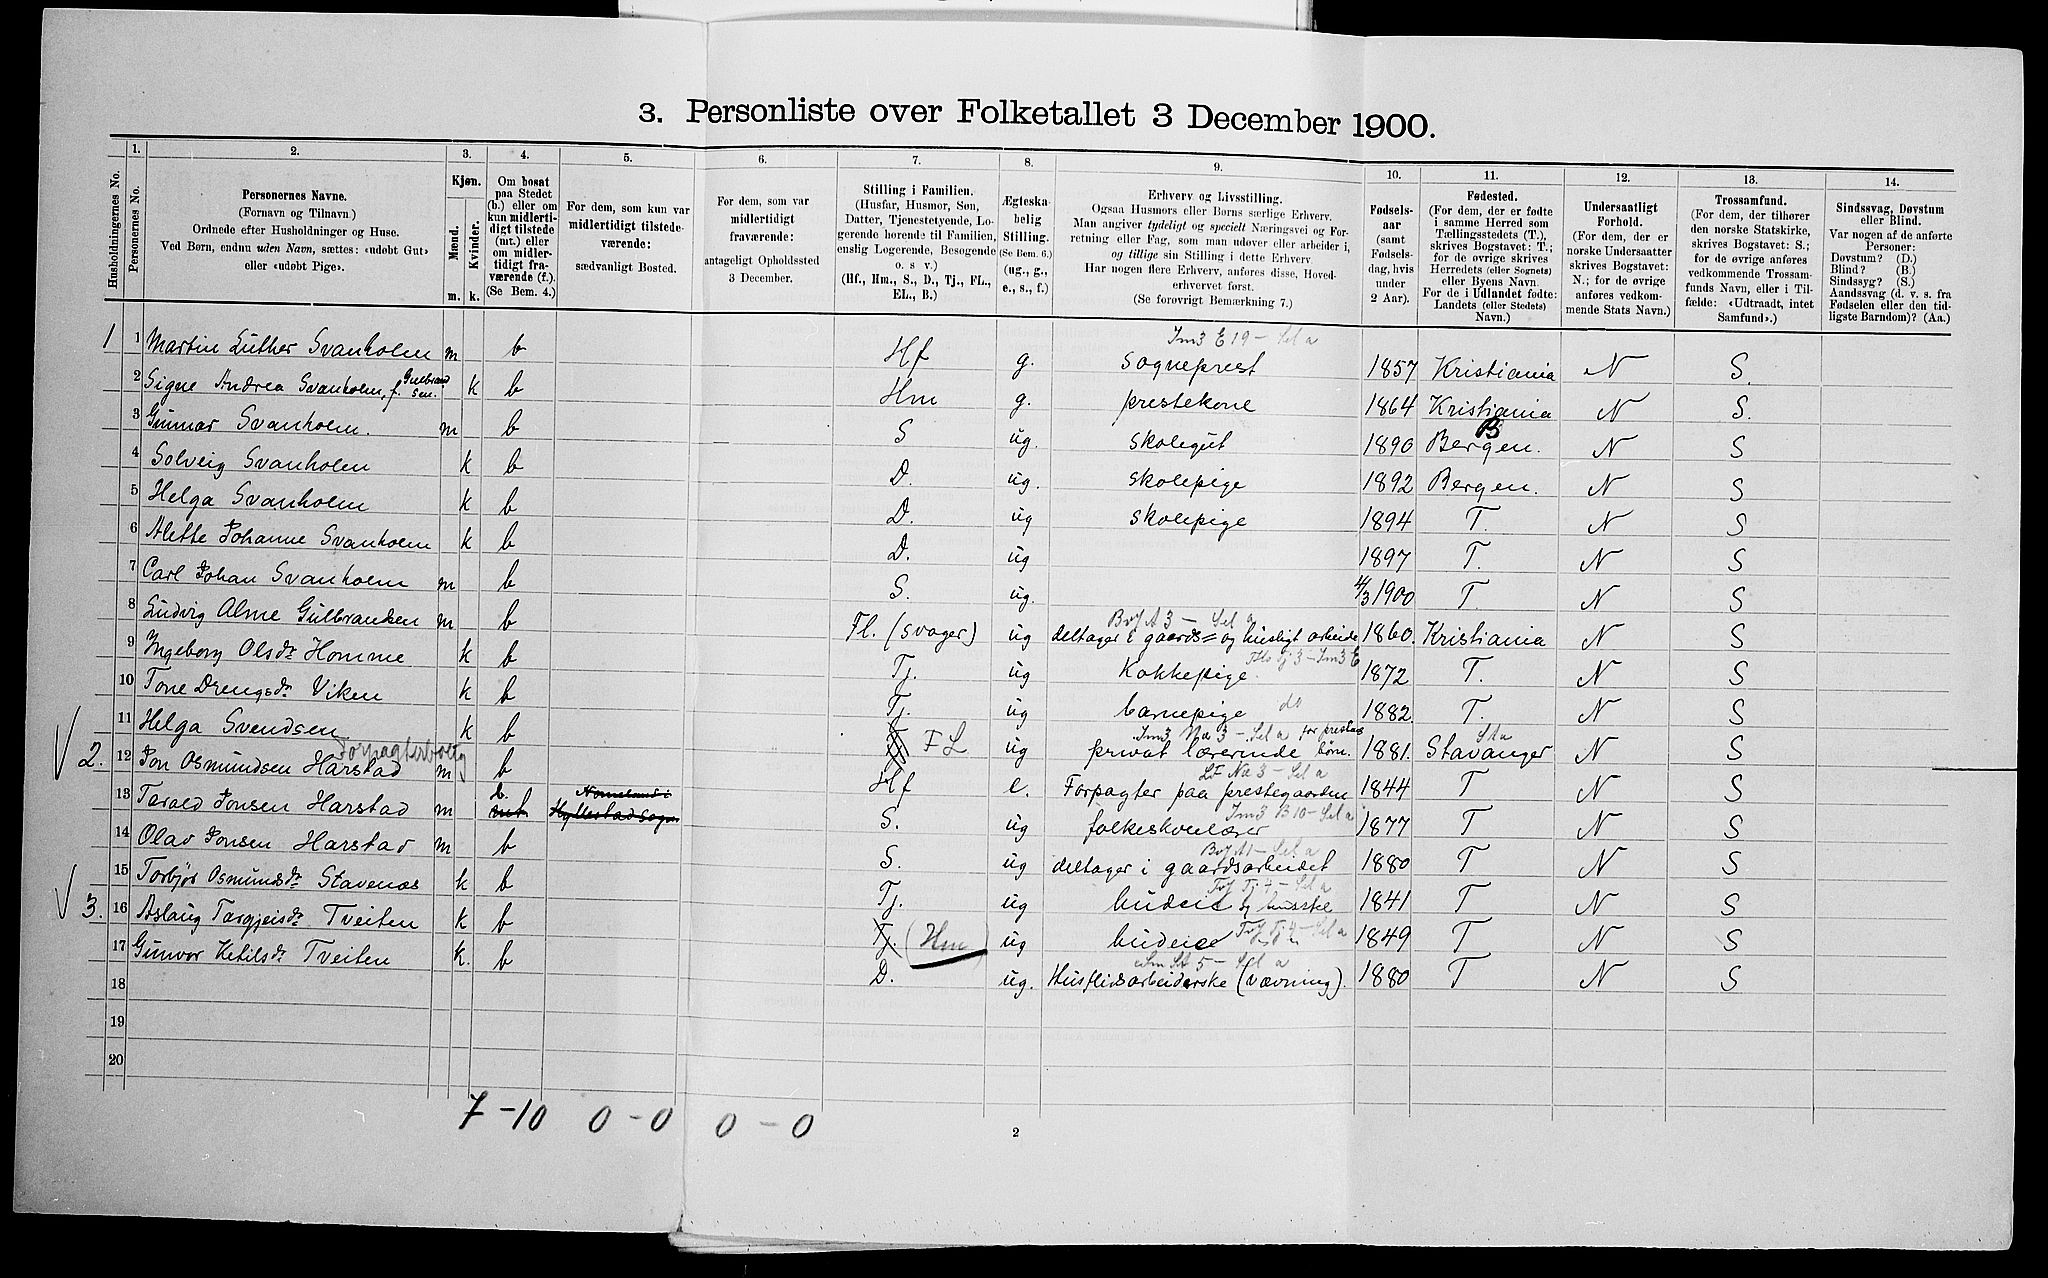 3. Personliste over Folketallet 3 December 1900.
Husholdningernes No.
1. Personernes No.
2. Personernes Navne.
(Fornavn og Tilnavn.)
Ordnede efter Husholdninger og Huse.
Ved Børn, endnu uden Navn, sættes: «udøbt Gut»
eller «udøbt Pige».
3. Kjøn.
Mænd. Kvinder.
m. k.
4. Om bosat
paa Stedet
(b.) eller om
kun midlerti-
digt tilstede
(mt.) eller
om midler-
tidigt fra-
værende (f.).
(Se Bem. 4.)
5. For dem, som kun var
midlertidigt tilstede-
værende:
sædvanligt Bosted.
6. For dem, som var
midlertidigt
fraværende:
antageligt Opholdssted
3 December.
7. Stilling i Familien.
(Husfar, Husmor, Søn,
Datter, Tjenestetyende, Lo-
gerende hørende til Familien,
enslig Logerende, Besøgende
o. s v.)
(Hf., Hm., S., D., Tj., FL.,
EL., B.)
8. Ægteska-
belig
Stilling.
(Se Bem. 6.)
(ug., g.,
e., s., f.)
9. Erhverv og Livsstilling.
Ogsaa Husmors eller Børns særlige Erhverv.
Man angiver tydeligt og specielt Næringsvei og For-
retning eller Fag, som man udøver eller arbeider i,
og tillige sin Stilling i dette Erhverv.
Har nogen flere Erhverv, anføres disse, Hoved-
erhvervet først.
(Se forøvrigt Bemærkning 7.)
10. Fødsels-
aar
(samt
Fødsels-
dag, hvis
under
2 Aar).
11. Fødested.
(For dem, der er fødte
i samme Herred som
Tællingsstedets (T.),
skrives Bogstavet: T.;
for de øvrige skrives
Herredets (eller Sognets)
eller Byens Navn.
For de i Udlandet fødte:
Landets (eller Stedets)
Navn.)
12. Undersaatligt
Forhold.
(For dem, der er
norske Undersaatter
skrives Bogstavet:
N.; for de øvrige
anføres vedkom-
mende Stats Navn.)
13. Trossamfund.
(For dem, der tilhører
den norske Statskirke,
skrives Bogstavet: S.;
for de øvrige anføres
vedkommende Trossam-
funds Navn, eller i Til-
fælde: «Udtraadt, intet
Samfund».)
14. Sindssvag, Døvstum
eller Blind.
Var nogen af de anførte
Personer:
Døvstum? (D.)
Blind? (B.)
Sindssyg? (S.)
Aandssvag (d. v. s. fra
Fødselen eller den tid-
ligste Barndom)? (Aa.)
Im3 E19 - Sel a
1 1 Martin Luther Svanholm m b Hf g. Sogneprest 1857 Kristiania N S.
2 Signe Andrea Svanholm, f. Gulbrandsen. k b Hm g. prestekone 1864 Kristiania N S.
3 Gunnar Svanholm. m b S ug. skolegut 1890 Bergen. B N S
4 Solveig Svanholm k b D. ug. skolepige 1892 Bergen. N S
5 Helga Svanholm k b D. ug skolepige 1894 T. N S
6 Alette Johanne Svanholm k b D. ug 1897 T. N S
7 Carl Johan Svanholm m b S. ug. 4/3 1900 T. N S
8 Ludvig Alme Gulbrandsen m b Fl. (svoger) ug deltager i gaards= og husligt arbeide 1860. Kristiania N S
9 Ingeborg Olsdr Homme k b Tj. ug Kokkepige 1872 T. N S
10 Tone Drengsdr Viken k b Tj. ug barnepige do 1882. T. N S
Im3 Na 3 - Sel a for prestens
11 Helga Svendsen k b FL ug privat lærerinde børn. 1881. Stavanger Sta N S
Forpagterbolig
LF Na 3 - Sel a
2. 12 Jon Osmundsen Harstad m b Hf e. Forpagter paa prestegaarden 1844 T N S
Im3 B10 - Sel a
13 Tarald Jonsen Harstad m b. mt Nomeland i Hyllestad Sogn S. ug folkeskolelærer 1877 T N S
14 Olav Jonsen Harstad m b S. ug deltager i gaardsarbeidet 1880 T N S
15 Torbjør Osmundsdr Stavenæs k b Tj. ug budeie og 1841 T N S
3. 16 Aslaug Targjeisdr Tveiten k b Tj. (Hm) ug budeie 1849 T N S
17 Gunvor Ketilsdr Tveiten k. b D. ug. Husflidsarbeiderske (vævning). 1880 T N S
18
19
20
7 - 10 0 - 0 0 - 0
2